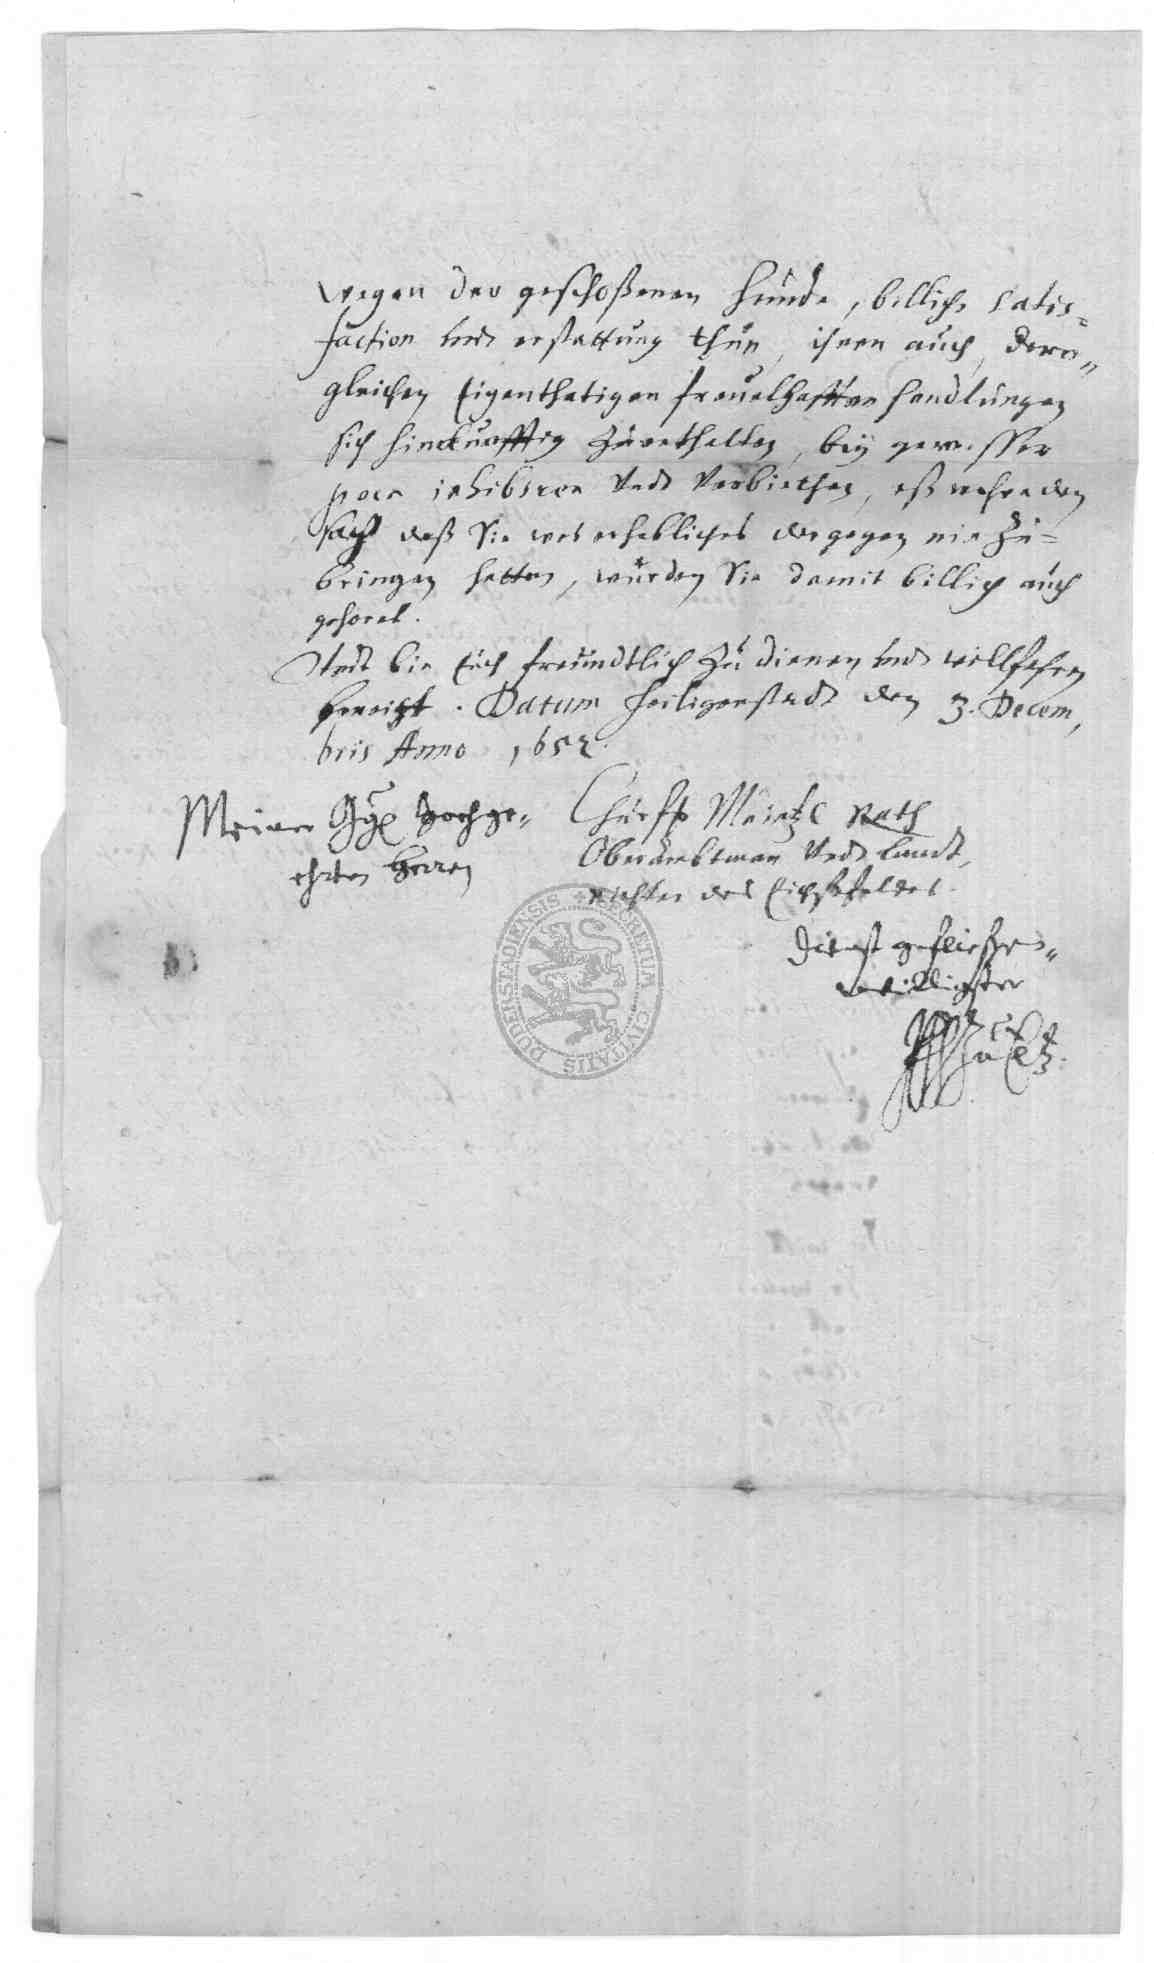 wegen der geschoßenen hunde, billiche satis-
faction vnd erstattung thun, ihnen auch, dero„
gleichen Eigenthatigen freuelhafften handlungen
sich hinckunfftig zuenthalten, bey gewisser
poen inhibiren vnd verbiethen, eß wehre den
sach daß Sie was erhebliches dargegen ein zu-
bringen hetten, würden Sie damit billich auch
gehöret.
Vndt bin Euch freundtlich zu dienen vnd willfahren
geneigt. Datum heiligenstadt den 3. Decem,
bris Anno 1652.
Meiner hochge„
ehrten Herren
Churfs Maintz Rath
Oberambtman vnd landt,
richter des Eichßfeldes.
Dienst gefließen„
willigster
SECRETUM CIVITATIS DUDERSTADIENSIS